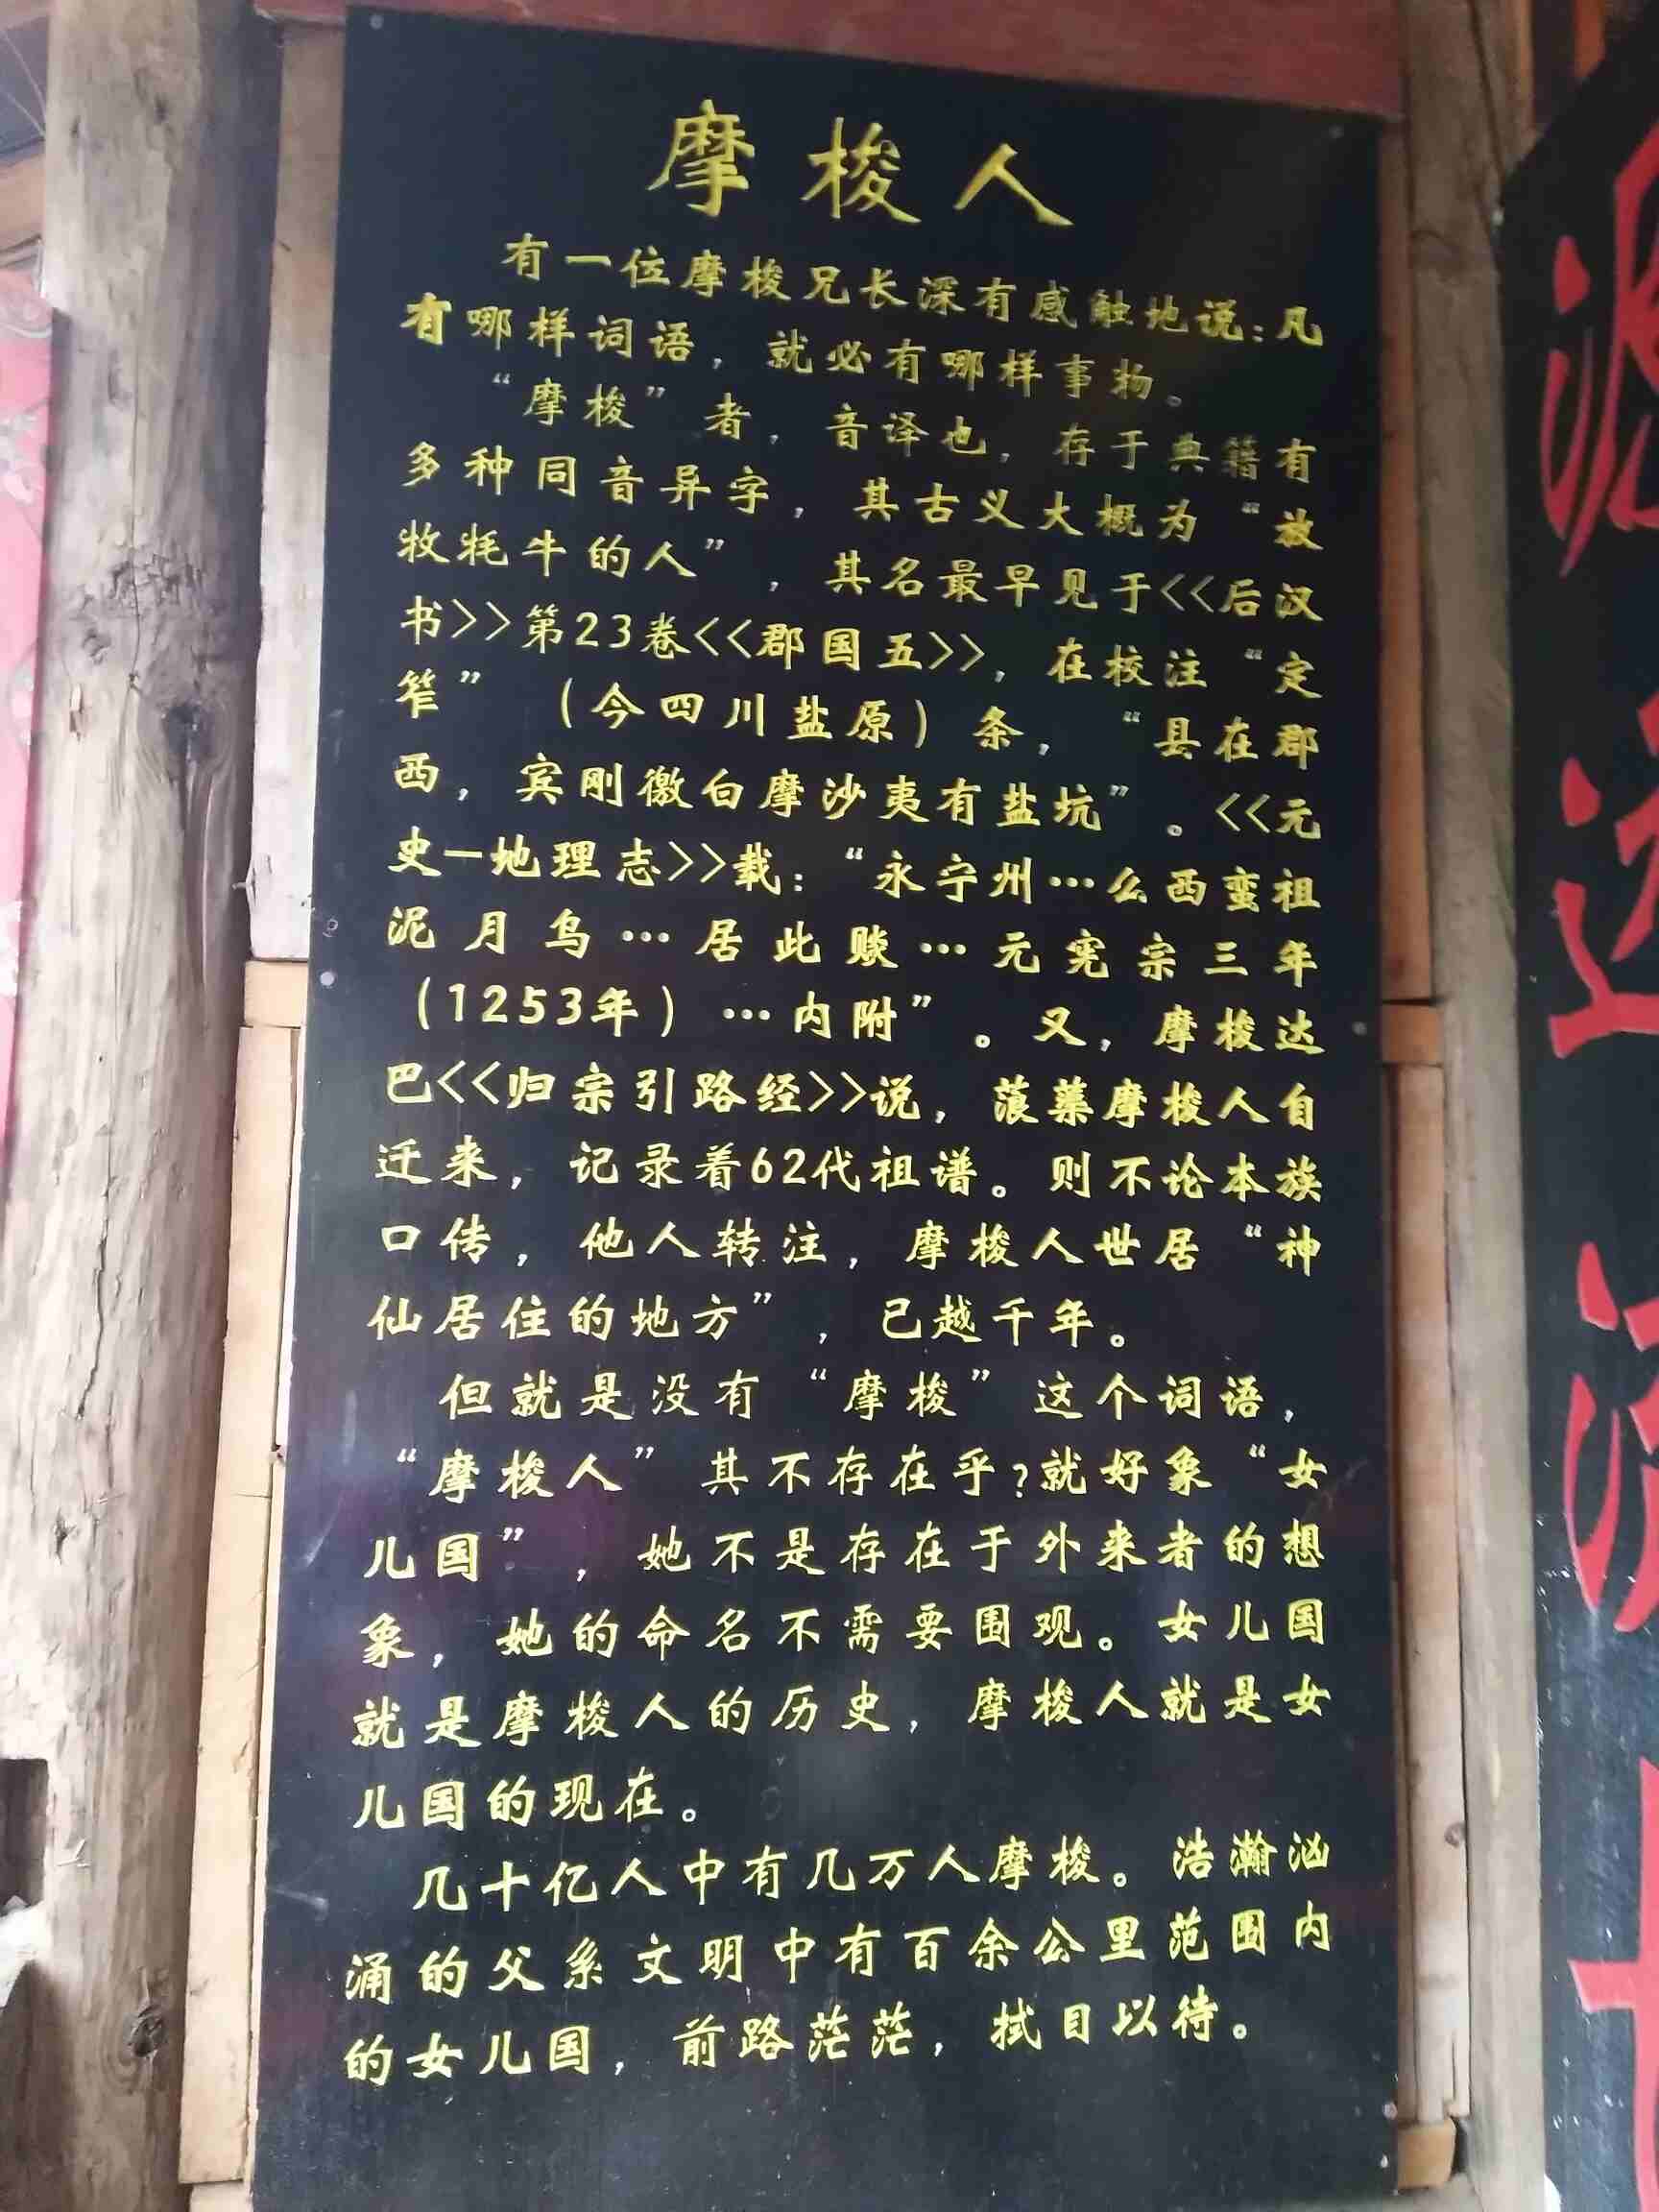 摩梭人
有一位摩梭兄长深有感触地说:凡
有哪样词语，就必有哪样事物。
“摩梭”者，音译也，存于典籍有
多种同音异字，其古义大概为“放
牧牦牛的人”，其名最早见于<<后汉
书>>第23卷<<郡国五>>，在校注“定
笮”（今四川盐原）条，“县在郡
西，宾刚徼白摩沙夷有盐坑”。<<元
史—地理志>>载:“永宁州…么西蛮祖
泥月乌…居此赕…元宪宗三年
(1253年)…内附”。又，摩梭达
巴<<归宗引路经>>说，蒗蕖摩梭人自
迁来，记录着62代祖谱。则不论本族
口传，他人转注，摩梭人世居“神
仙居住的地方”，已越千年。
但就是没有“摩梭”这个词语，
“摩梭人”其不存在乎?就好象“女
儿国”，她不是存在于外来者的想
象，她的命名不需要围观。女儿国
就是摩梭人的历史，摩梭人就是女
儿国的现在。
几十亿人中有几万人摩梭。浩瀚汹
涌的父系文明中有百余公里范围内
的女儿国，前路茫茫，拭目以待。